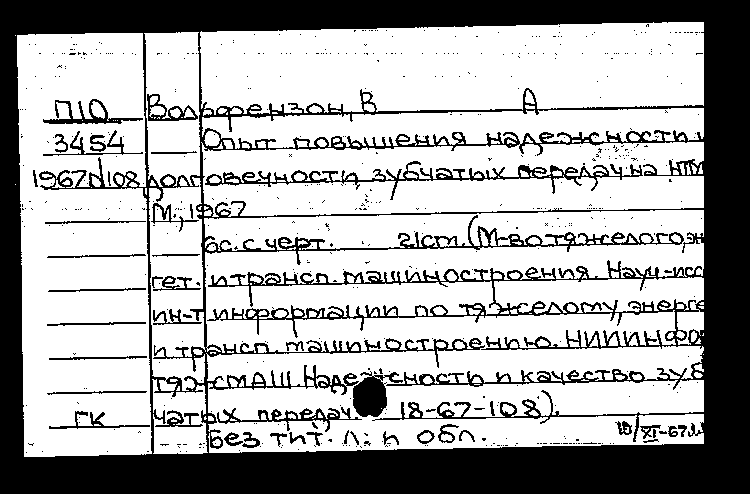 П10 Вольфензон, В А
3454 Опыт повышения надежности и
1967N108 долговечности зубчатых передач на НТМ
М., 1967
6с. с черт. 21cm. (М-во тяжелого, эн
гет. и трансп. машиностроения. Науч-исс
ин-т информации по тяжелому, энерге
и трансп. машиностроению. НИИИНФОР
ТЯЖСМАШ. Надежность и качество зуб
ГК чатых передач. 18-67-108).
Без тит. л. и обл.